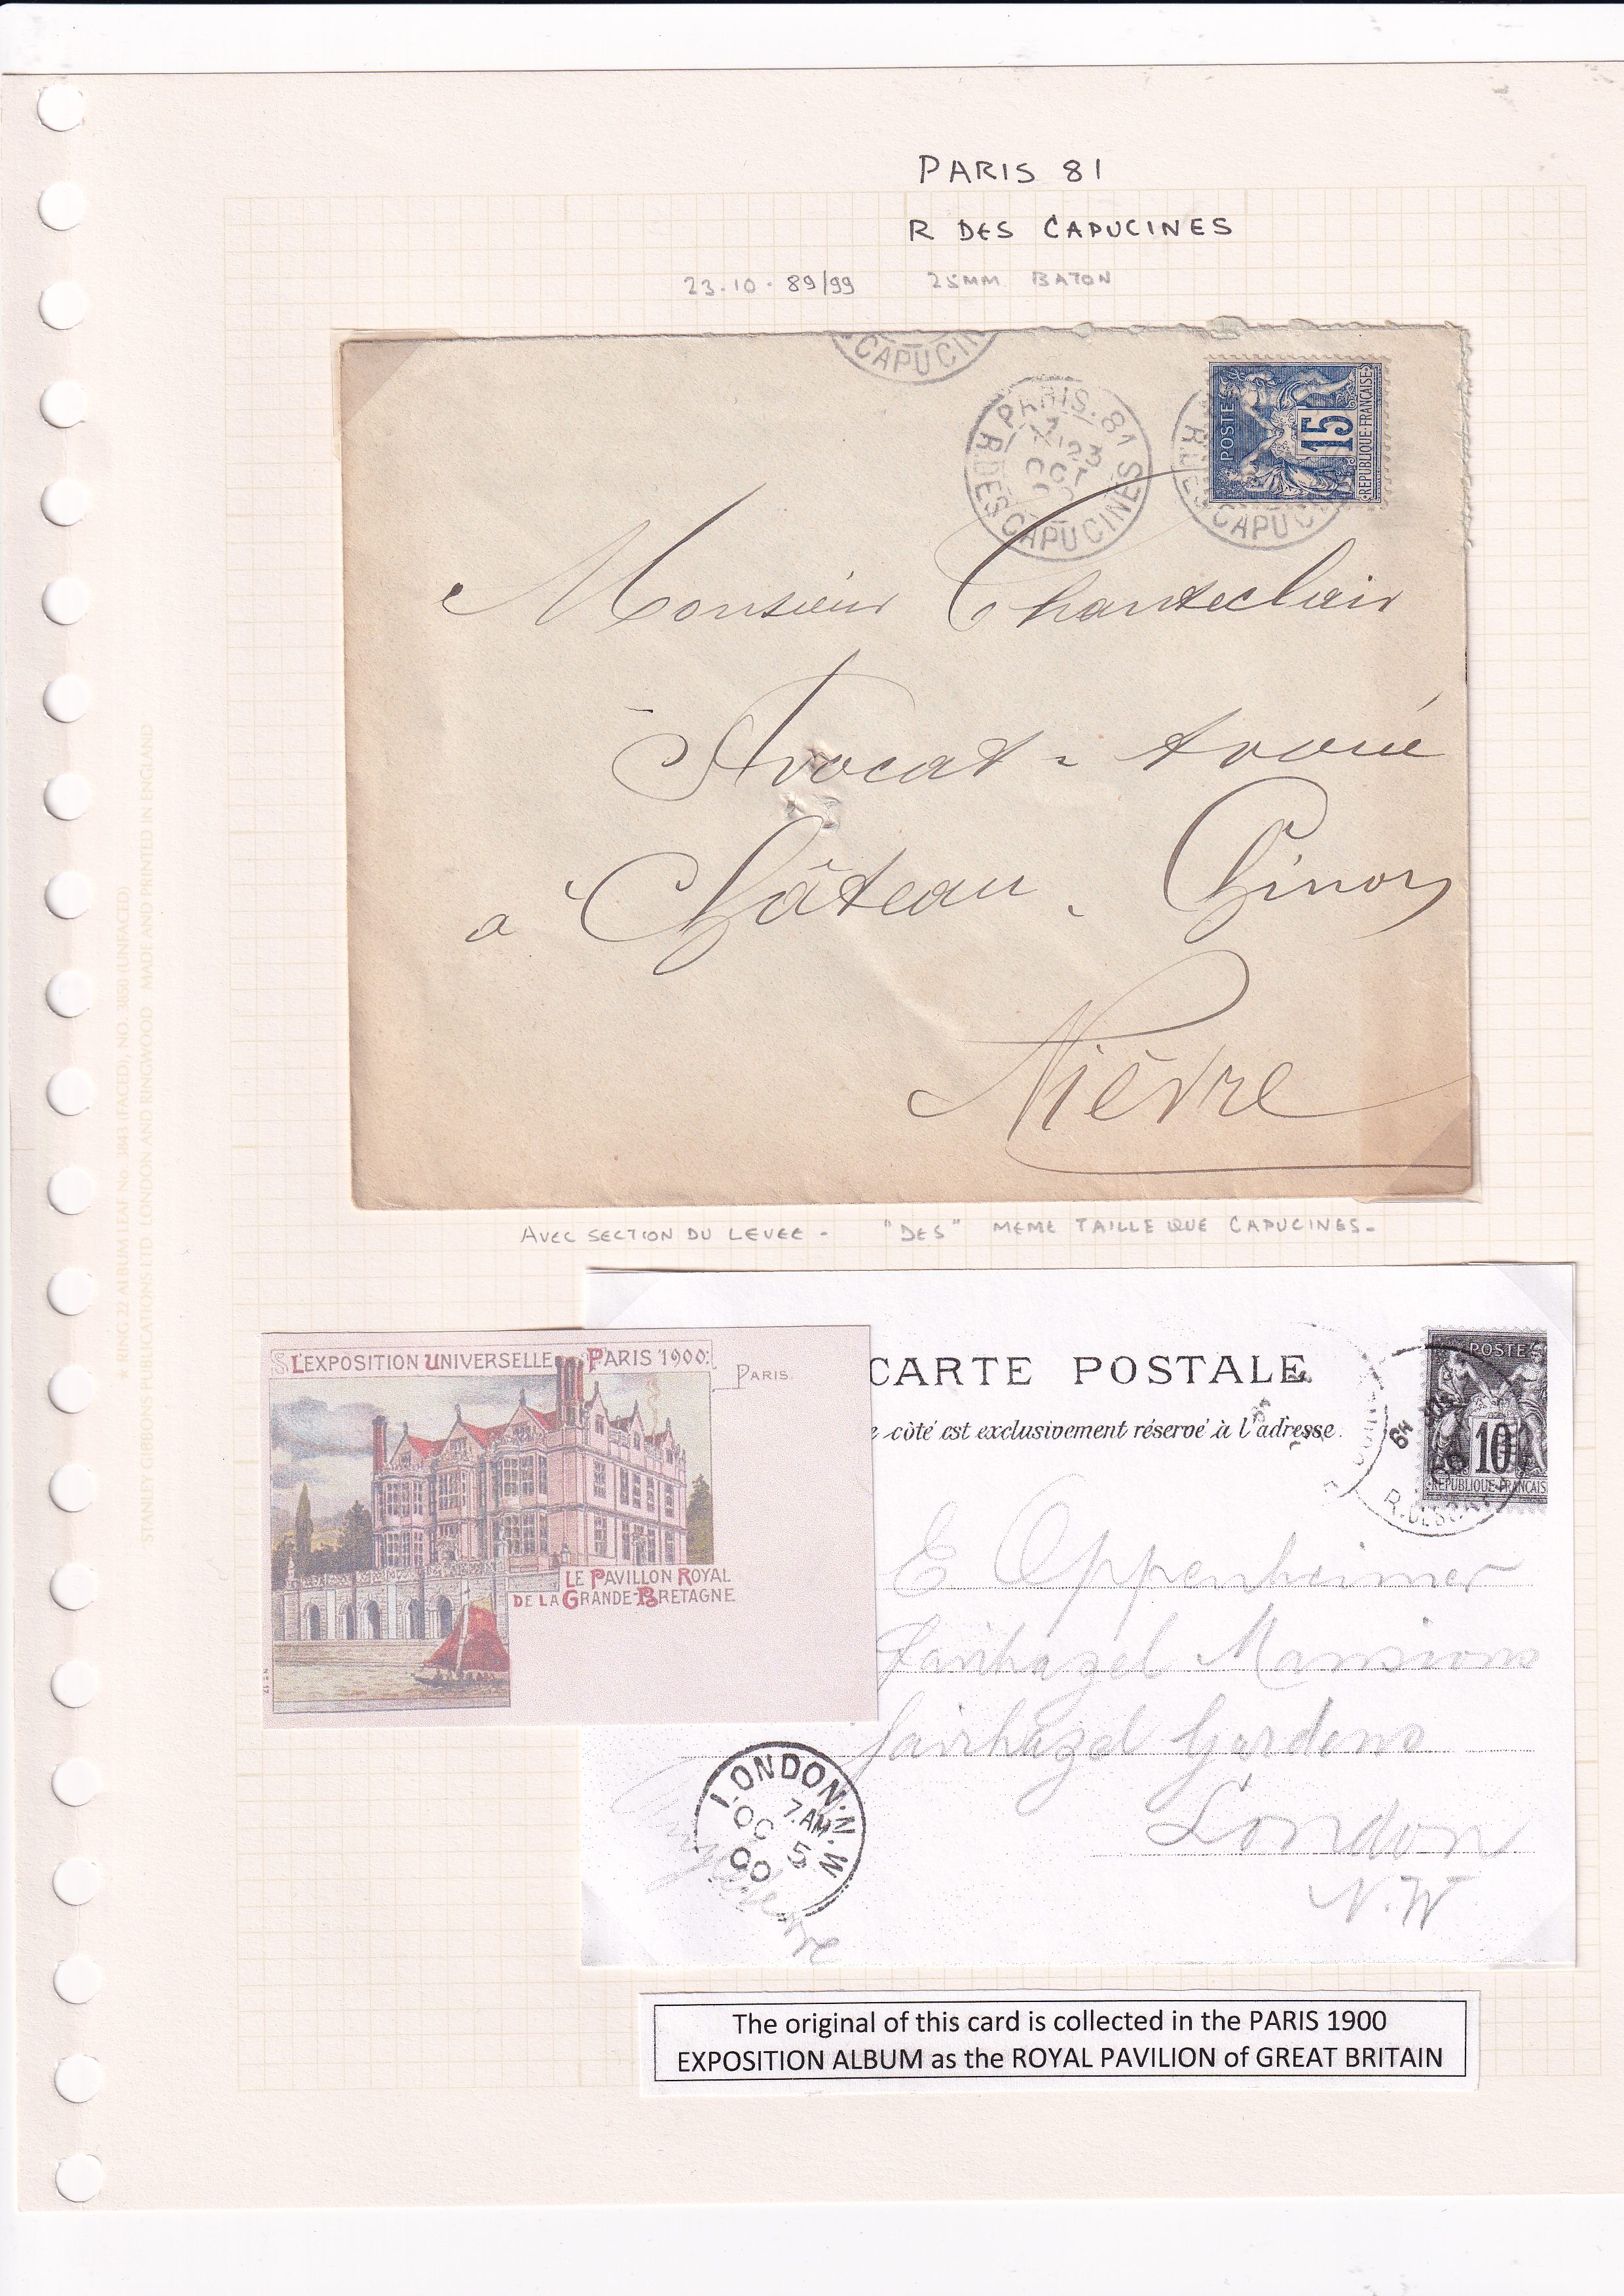 PARIS 81
R DES CAPUCINES
23.10.89/99 25MM BATON
CAPUCIN
PARIS.81
23
OCT
R.DES CAPUCINES
ES CAPUC
POSTES
15
REPUBLIQUE FRANÇAISE
Monsieur Chanteclair
Avocat - Avoué
a Château-Chinon
Nièvre
AVEC SECTION DU LEVEE - "DES" MEME TAILLE QUE CAPUCINES -
L'EXPOSITION UNIVERSELLE PARIS 1900:
PARIS.
LE PAVILLON ROYAL
DE LA GRANDE-BRETAGNE
No 17
CARTE POSTALE
e côté est exclusivement réservé à l'adresse.
POSTES
10
REPUBLIQUE FRANÇAIS
R.DES
E Oppenheimer
Fairhazel Mansions
Fairhazel Gardens
London
N.W
Angleterre
LONDON.N.W
7.AM
OC 5
00
The original of this card is collected in the PARIS 1900
EXPOSITION ALBUM as the ROYAL PAVILION of GREAT BRITAIN
★ RING 22 ALBUM LEAF No. 3843 (FACED), NO. 3850 (UNFACED)
STANLEY GIBBONS PUBLICATIONS LTD LONDON AND RINGWOOD MADE AND PRINTED IN ENGLAND